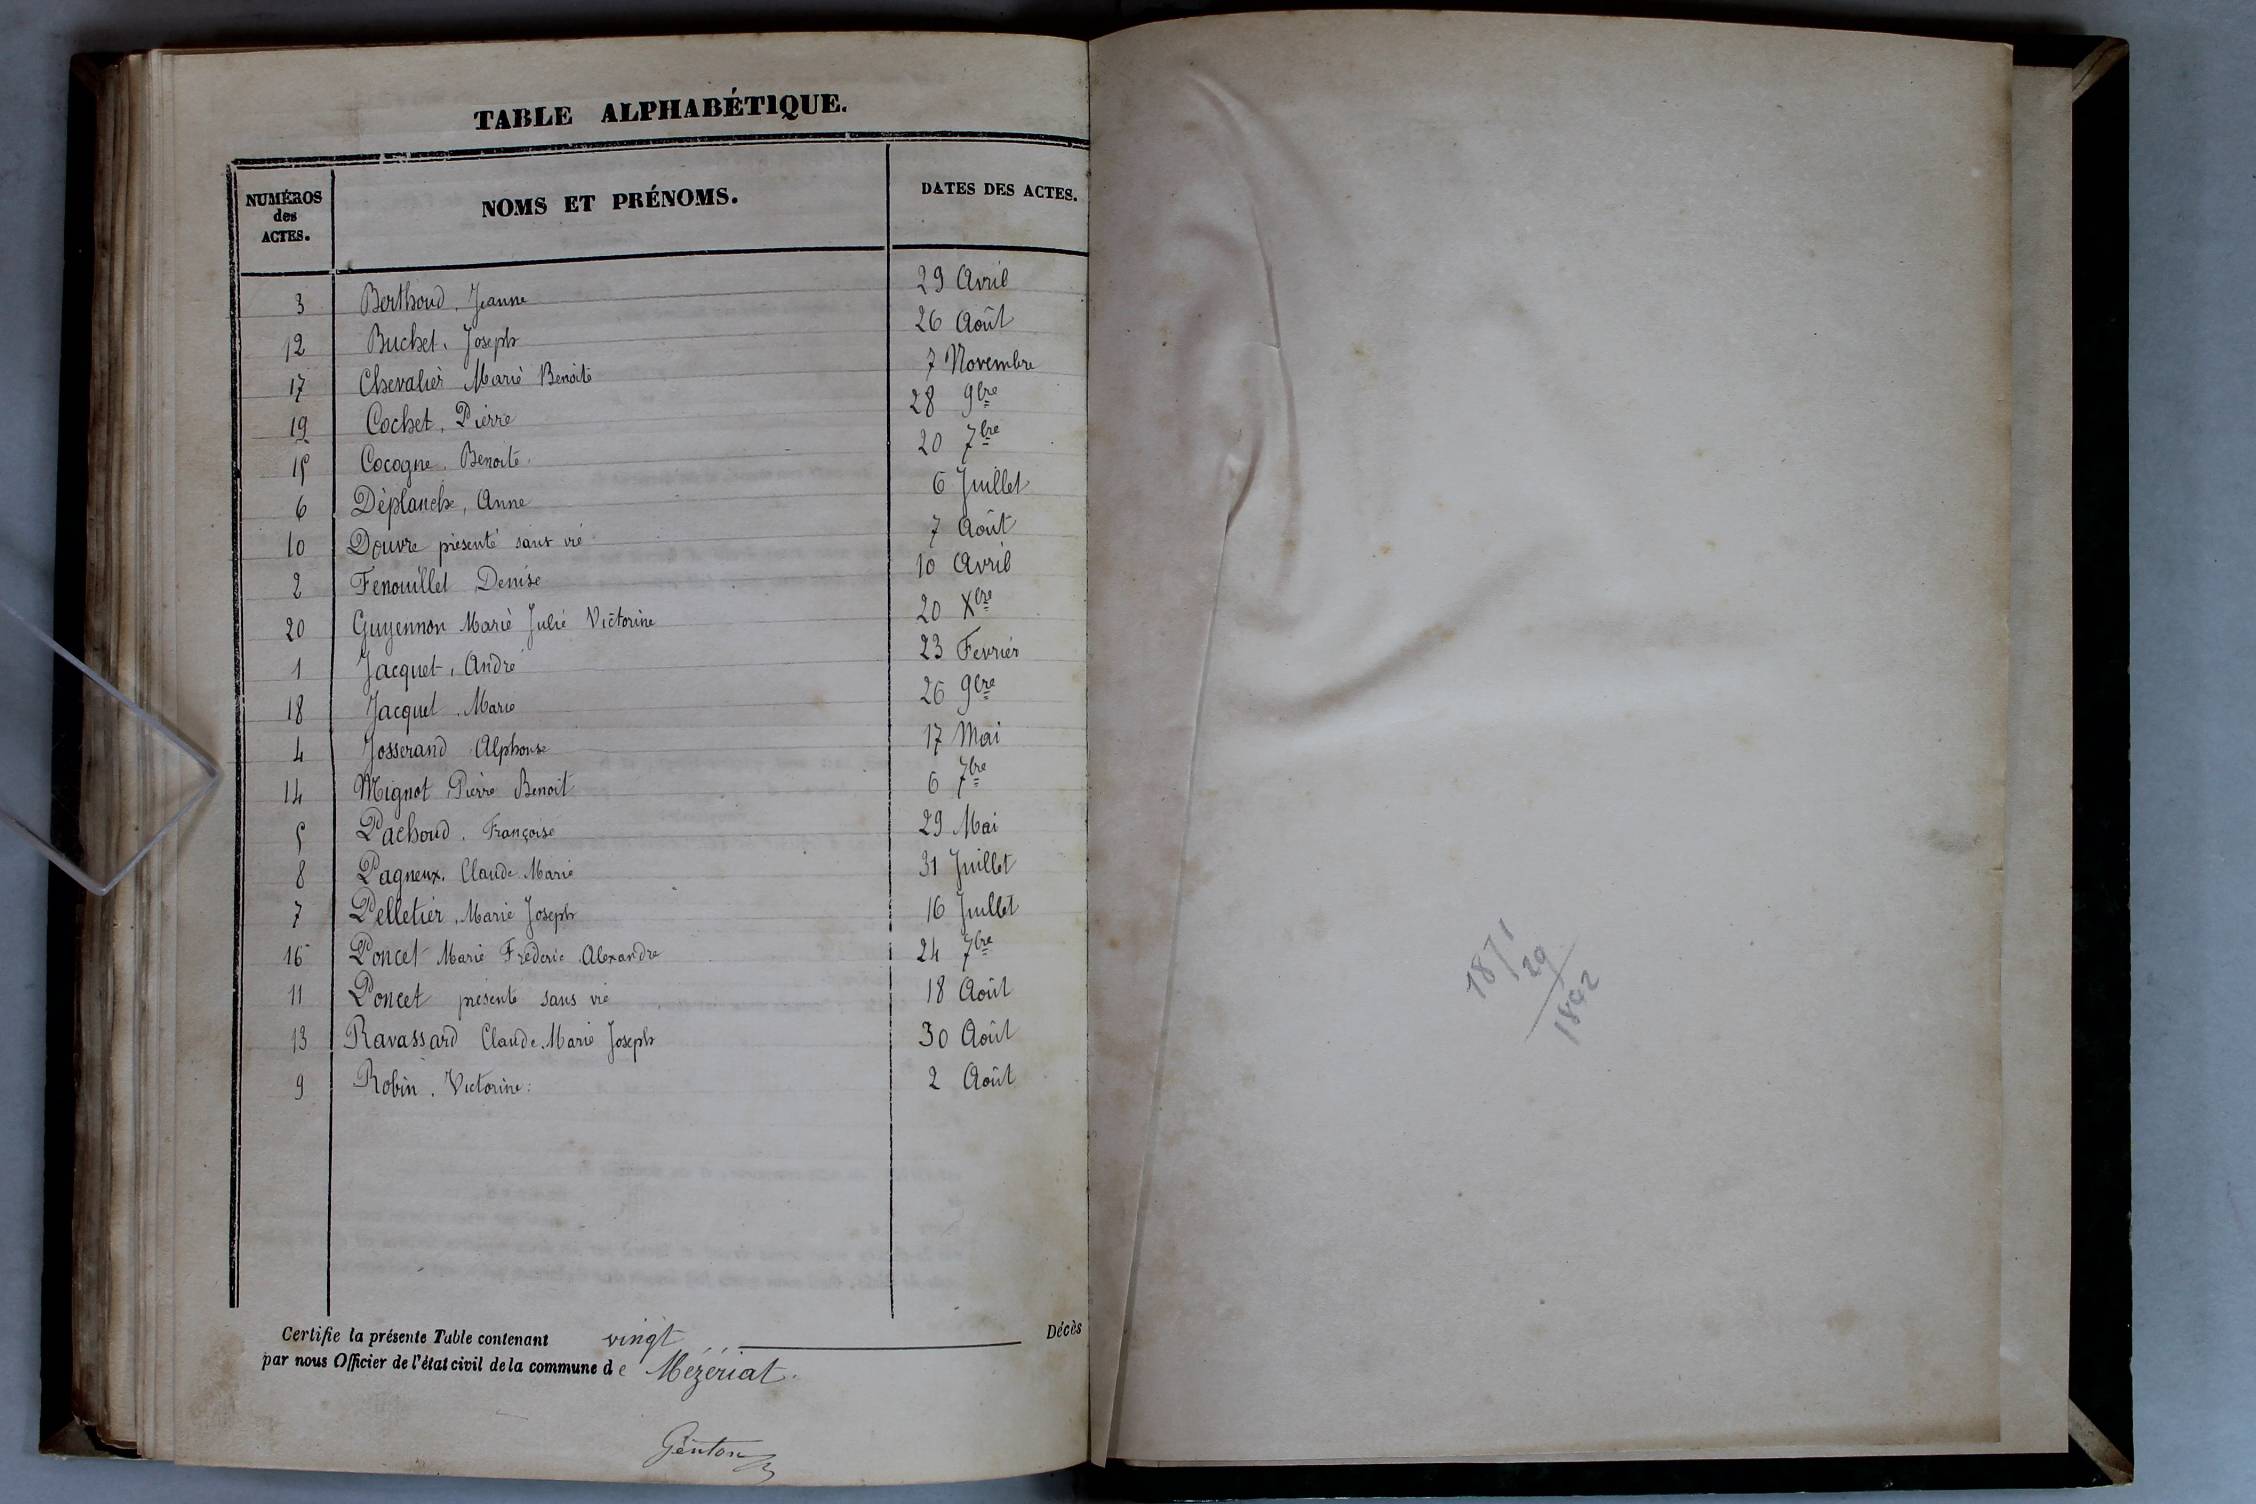 TABLE ALPHABÉTIQUE.
NUMÉROS des ACTES. NOMS ET PRÉNOMS. DATES DES ACTES.
3 Berthoud, Jeanne 29 Avril
12 Buchet, Joseph 26 Août
17 Chevalier Marie Benoite 7 Novembre
19 Cochet, Pierre 28 9bre
15 Cocogne, Benoite 20 7bre
6 Déplanche, Anne 6 Juillet
10 Douvre présenté sans vie 7 Août
2 Fenouillet Denise 10 Avril
20 Guyennon Marie Julie Victorine 20 Xbre
1 Jacquet, André 23 Fevrier
18 Jacquet, Marie 26 9bre
4 Josserand Alphonse 17 Mai
14 Mignot, Pierre Benoit 6 7bre
5 Pachoud, Françoise 29 Mai
8 Pagneux, Claude Marie 31 Juillet
7 Pelletier, Marie Joseph 16 Juillet
16 Poncet Marie Fréderic Alexandre 24 7bre
11 Poncet présenté sans vie 18 Août
13 Ravassard Claude Marie Joseph 30 Août
9 Robin, Victorine: 2 Août
Certifie la présente Table contenant vingt Décès
par nous Officier de l'état civil de la commune de Mézériat.
Genton
1871
20
1892